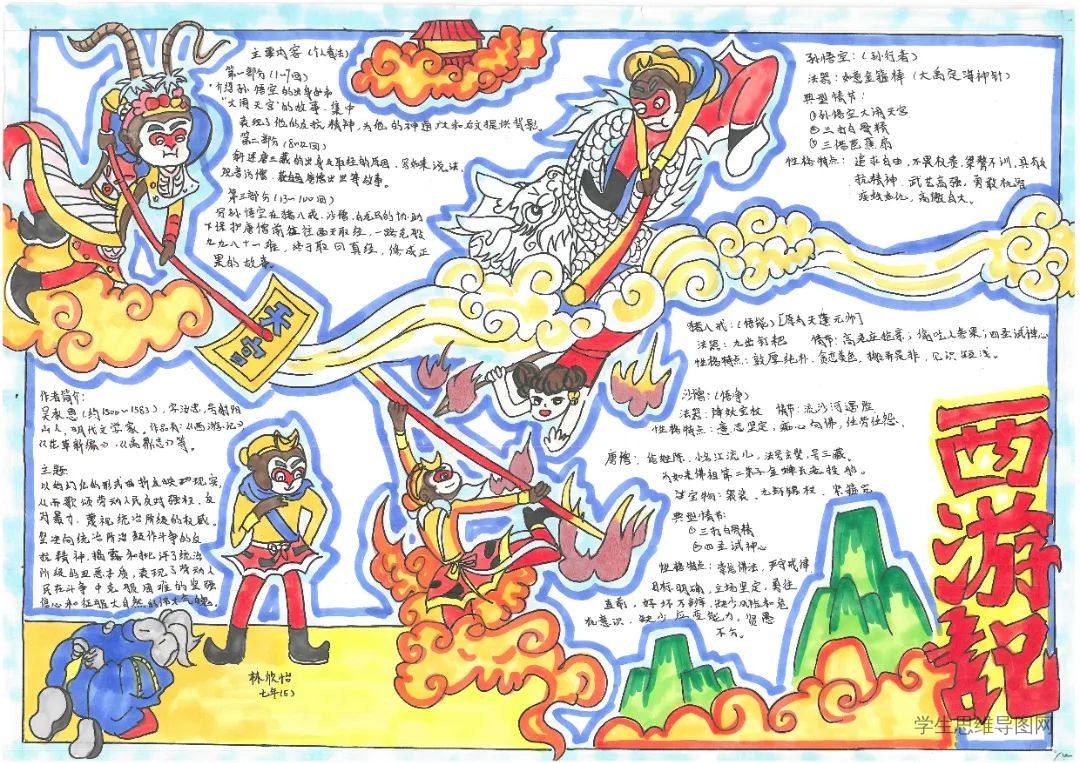 主要内容(个人看法)
第一部分(1~7回)
介绍孙悟空的出身和
"大闹天宫"的故事,集中
表现了他的反抗精神,为他的神通广大和后文提供背景。
第二部分(8~12回)
叙述唐三藏的出身及取经的原因,写如来说法,
观音访僧,唐僧出世等故事。
第三部分(13~100回)
写孙悟空在猪八戒、沙僧、白龙马的协助
下保护唐僧前往西天取经,一路克服
九九八十一难,终于取回真经,修成正
果的故事。
天宫
孙悟空:(孙行者)
法器:如意金箍棒(大禹定海神针)
典型情节:
①孙悟空大闹天宫
②三打白骨精
③三借芭蕉扇
性格特点:追求自由,不畏权贵,桀骜不训,具有反
抗精神,武艺高强,勇敢机智
疾恶如仇,高傲自大。
猪八戒:(悟能)[原为天蓬元帅]
法器:九齿钉耙 情节:高老庄招亲,偷吃人参果,四圣试禅心
性格特点:敦厚纯朴,贪恋美色,搬弄是非,见识短浅。
沙僧:(悟净)
法器:降妖宝杖 情节:流沙河遇险
性格特点:意志坚定,痴心向佛,任劳任怨。
唐僧:俗姓陈,小名江流儿,法号玄奘,号三藏。
为如来佛祖第二弟子金蝉子投胎。
宝物:袈裟,九环锡杖,紧箍咒
典型情节:
①三打白骨精
②四圣试禅心
性格特点:崇信佛法,严守戒律
目标明确,立场坚定,勇往
直前,好坏不辨,缺少风险和危
机意识,缺少应变能力,贤愚
不分。
作者简介:
吴承恩(约1500~1583),字汝忠,号射阳
山人,明代文学家,作品有《西游记》
《花草新编》、《禹鼎志》等。
主题
以幻化的形式曲折反映现实,
从而歌颂劳动人民反对强权,反
对暴力,蔑视统治阶级的权威,
坚决向统治阶级作斗争的反
抗精神,揭露和批评了统治
阶级的丑恶本质,表现了劳动人
民在斗争中克服困难的坚强
信心和征服大自然的伟大气魄。
林欣怡
七年(5)
西游記
学生思维导图网